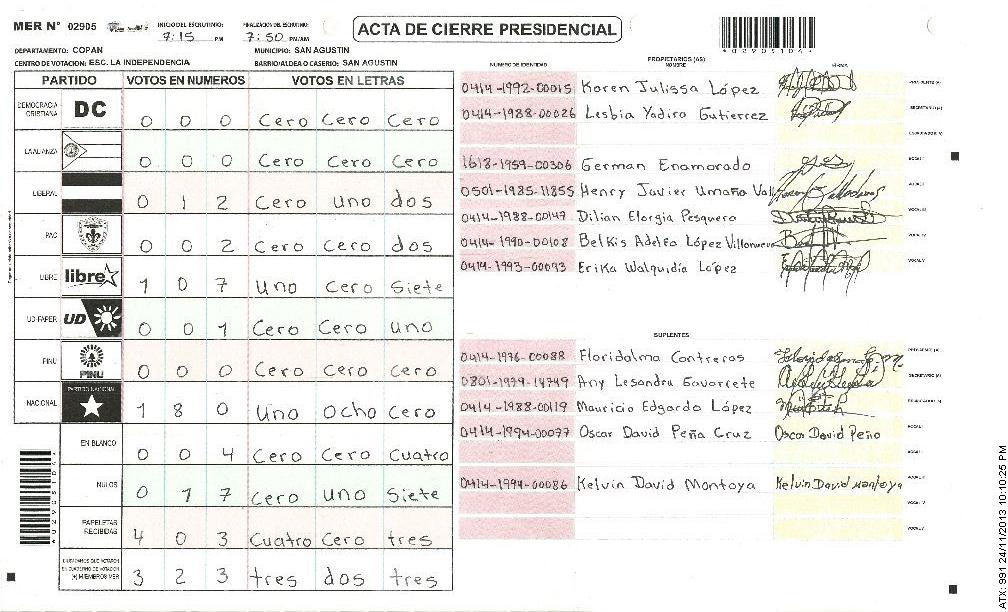 MER N° 02905 INICIO DEL ESCRUTINIO: 7:15 PM FINALIZACIÓN DEL ESCRUTINIO: 7:50 PM/AM
ACTA DE CIERRE PRESIDENCIAL
DEPARTAMENTO: COPAN MUNICIPIO: SAN AGUSTIN
CENTRO DE VOTACION: ESC. LA INDEPENDENCIA BARRIO/ALDEA O CASERIO: SAN AGUSTIN
PARTIDO VOTOS EN NUMEROS VOTOS EN LETRAS
DEMOCRACIA CRISTIANA DC 0 0 0 Cero Cero Cero
LA ALIANZA 0 0 0 Cero Cero Cero
LIBERAL 0 1 2 Cero uno dos
PAC 0 0 2 Cero Cero dos
LIBRE libre 1 0 7 Uno Cero Siete
UD-FAPER UD 0 0 1 Cero Cero uno
PINU PINU 0 0 0 Cero Cero Cero
NACIONAL PARTIDO NACIONAL 1 8 0 Uno Ocho Cero
EN BLANCO 0 0 4 Cero Cero Cuatro
NULOS 0 1 7 Cero uno Siete
PAPELETAS RECIBIDAS 4 0 3 Cuatro Cero tres
CIUDADANOS QUE VOTARON EN CUADERNO DE VOTACION (+) MIEMBROS MER 3 2 3 tres dos tres
NUMERO DE IDENTIDAD PROPIETARIOS (AS) NOMBRE FIRMA
0414-1992-00015 Karen Julissa López PRESIDENTE (A)
0414-1988-00026 Lesbia Yadira Gutierrez SECRETARIO (A)
ESCRUTADOR (A)
1618-1959-00306 German Enamorado VOCAL I
0501-1985-11855 Henry Javier Umaña VOCAL II
0414-1988-00147 Dilian Elorgia Pesquera VOCAL III
0414-1990-00108 Belkis Adelfa López Villanueva VOCAL IV
0414-1993-00093 Erika Walquidia López VOCAL V
SUPLENTES
0414-1976-00088 Floridalma Contreros PRESIDENTE (A)
0801-1974-14749 Any Lesandra Gavarrete SECRETARIO (A)
0414-1988-00119 Mauricio Edgardo López ESCRUTADOR (A)
0414-1994-00077 Oscar David Peña Cruz Oscar David Peña VOCAL I
VOCAL II
0414-1994-00086 Kelvin David Montoya Kelvin David Montoya VOCAL III
VOCAL IV
VOCAL V
ATX: 991 24/11/2013 10:10:25 PM